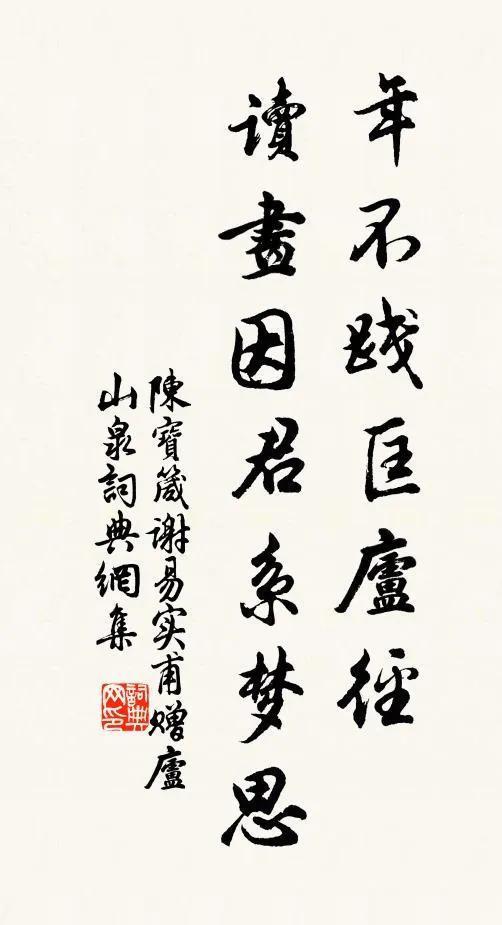 年不践匡廬徑
讀畫因君系梦思
陳寶箴谢易实甫赠廬
山泉詞典網集
詞典网印